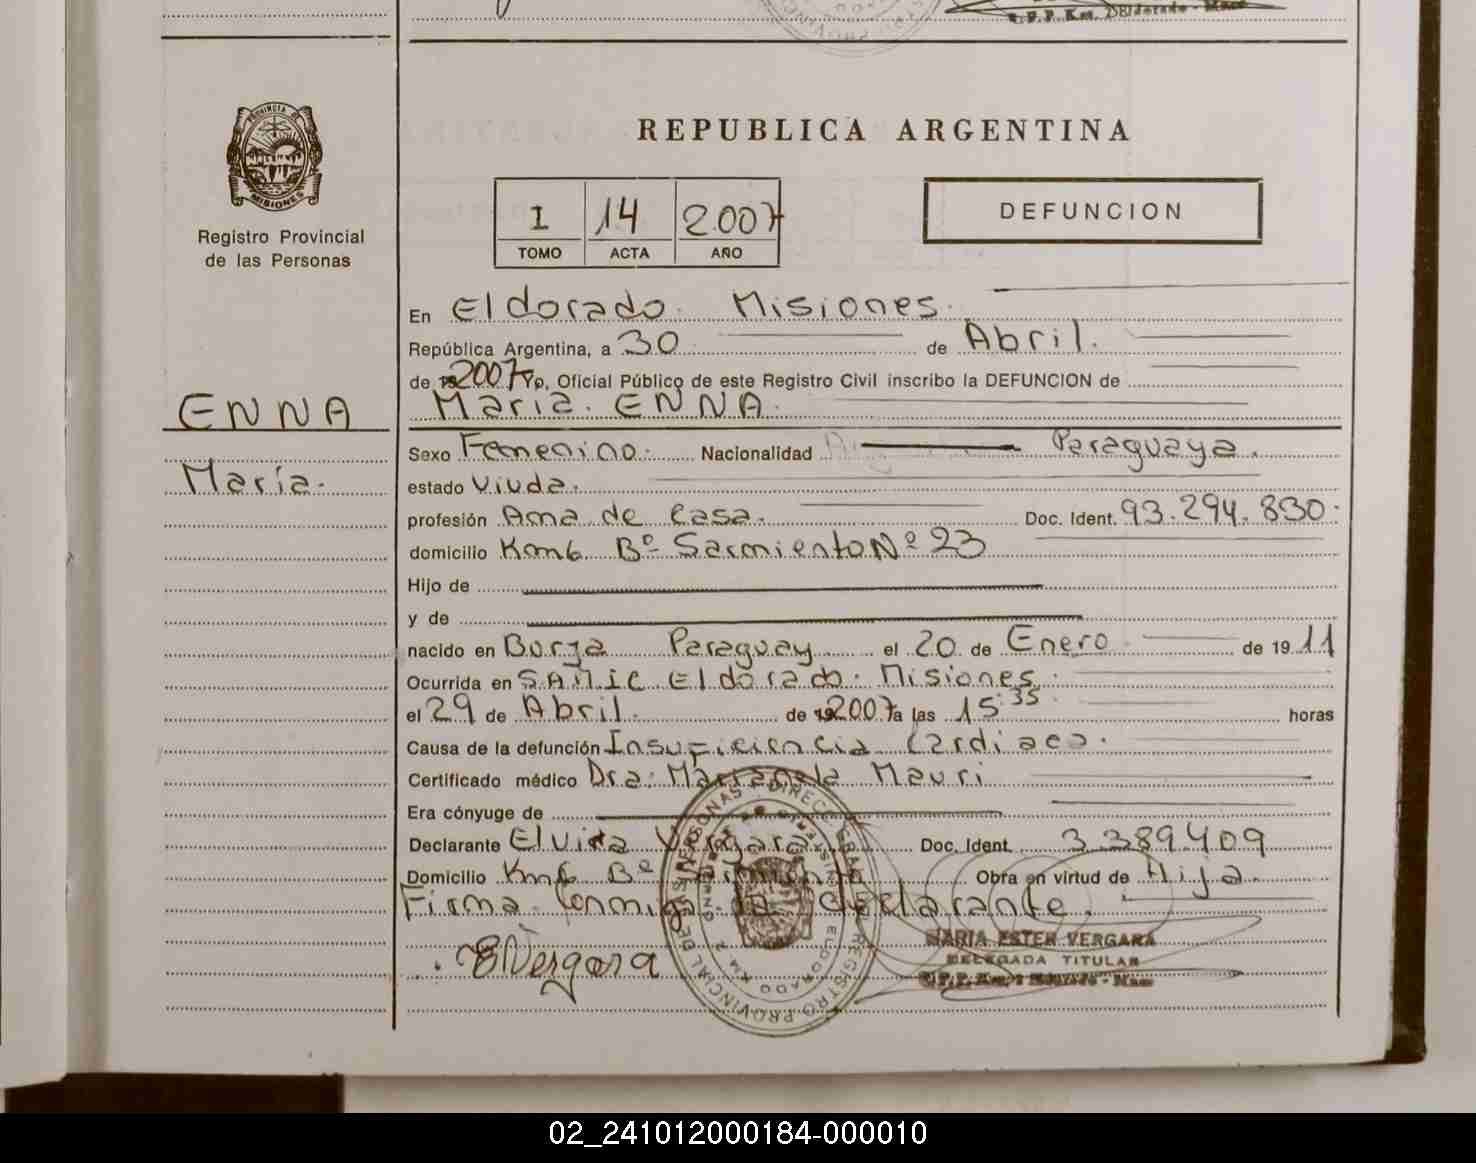 PROVINCIA DE
MISIONES
Registro Provincial
de las Personas
ENNA
María.
REPUBLICA ARGENTINA
I 14 2.007
TOMO ACTA AÑO
DEFUNCION
En Eldorado. Misiones.
República Argentina, a 30 de Abril.
de 2007 Yo, Oficial Público de este Registro Civil inscribo la DEFUNCION de
María. ENNA.
Sexo Femenino. Nacionalidad Paraguaya.
estado Viuda.
profesión Ama de Casa. Doc. Ident. 93.294.830.
domicilio Km6 Bº Sarmiento Nº 23
Hijo de
y de
nacido en Borja Paraguay el 20 de Enero de 19 11
Ocurrida en S.A.M.I.C Eldorado. Misiones.
el 29 de Abril. de 2007 a las 15:35 horas
Causa de la defunción Insuficiencia Cardiaca.
Certificado médico Dra: Marianela Mauri
Era cónyuge de
Declarante Elvira Vergara Doc. Ident. 3.389.409
Domicilio Km6 Bº Sarmiento Obra en virtud de Hija.
Firma Conmigo la declarante.
EVergara
MARIA ESTER VERGARA
DELEGADA TITULAR
02_241012000184-000010